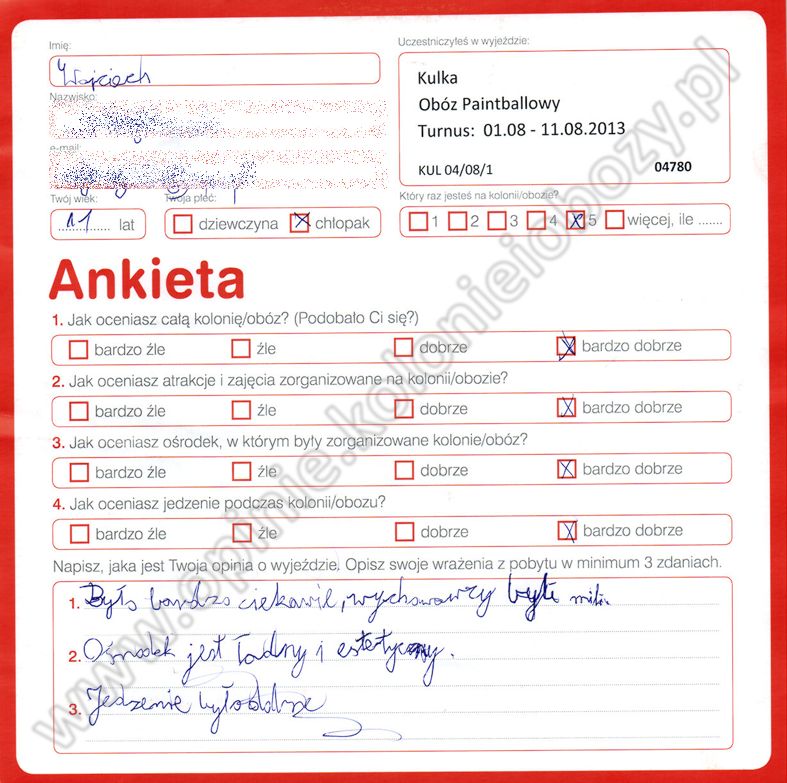 Imię:
Wojciech
Nazwisko
e-mail
Twój wiek:
Twoja płeć:
11 lat
dziewczyna
chłopak
Uczestniczyłeś w wyjeździe:
Kulka
Obóz Paintballowy
Turnus: 01.08 - 11.08.2013
KUL 04/08/1 04780
Który raz jesteś na kolonii/obozie?
1 2 3 4 5 więcej, ile .......
Ankieta
1. Jak oceniasz całą kolonię/obóz? (Podobało Ci się?)
bardzo źle źle dobrze bardzo dobrze
2. Jak oceniasz atrakcje i zajęcia zorganizowane na kolonii/obozie?
bardzo źle źle dobrze bardzo dobrze
3. Jak oceniasz ośrodek, w którym były zorganizowane kolonie/obóz?
bardzo źle źle dobrze bardzo dobrze
4. Jak oceniasz jedzenie podczas kolonii/obozu?
bardzo źle źle dobrze bardzo dobrze
Napisz, jaka jest Twoja opinia o wyjeździe. Opisz swoje wrażenia z pobytu w minimum 3 zdaniach.
1. Było bardzo ciekawie, wychowawcy byli mili.
2. Ośrodek jest ładny i estetyczny.
3. Jedzenie było dobrze
www.opinie.kolonieiobozy.pl